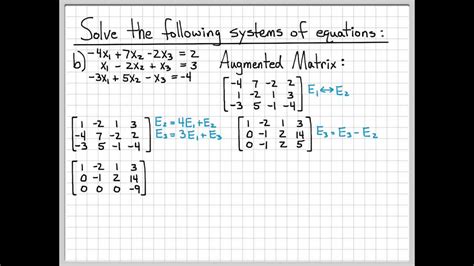 Solve the following systems of equations:
b) -4x₁ + 7x₂ - 2x₃ = 2
x₁ - 2x₂ + x₃ = 3
-3x₁ + 5x₂ - x₃ = -4
Augmented Matrix:
[-4 7 -2 2
1 -2 1 3
-3 5 -1 -4] E₁ ↔ E₂
[1 -2 1 3
-4 7 -2 2
-3 5 -1 -4] E₂ = 4E₁ + E₂
E₃ = 3E₁ + E₃
[1 -2 1 3
0 -1 2 14
0 -1 2 5] E₃ = E₃ - E₂
[1 -2 1 3
0 -1 2 14
0 0 0 -9]